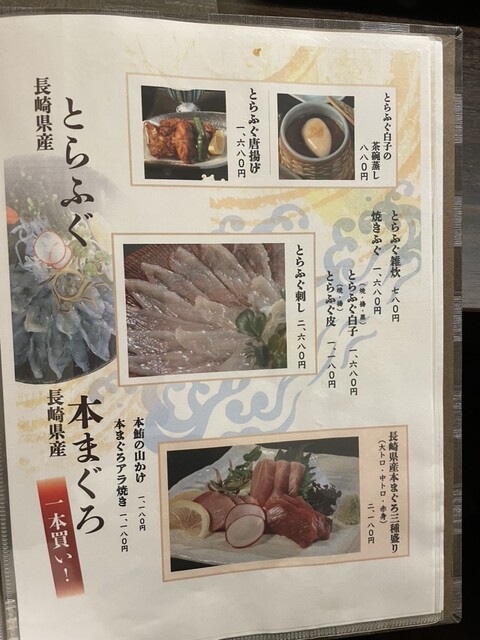 長崎県産
とらふぐ
とらふぐ白子の
茶碗蒸し
八八〇円
とらふぐ唐揚げ
一、六八〇円
とらふぐ雑炊 七八〇円
焼きふぐ 一、六八〇円
とらふぐ白子 一、六八〇円
とらふぐ皮 一、一八〇円
とらふぐ刺し 二、六八〇円
長崎県産
本まぐろ
一本買い!
長崎県産本まぐろ三種盛り
(大トロ・中トロ・赤身)
二、一八〇円
本鮪の山かけ 一、一八〇円
本まぐろアラ焼き 一、一八〇円